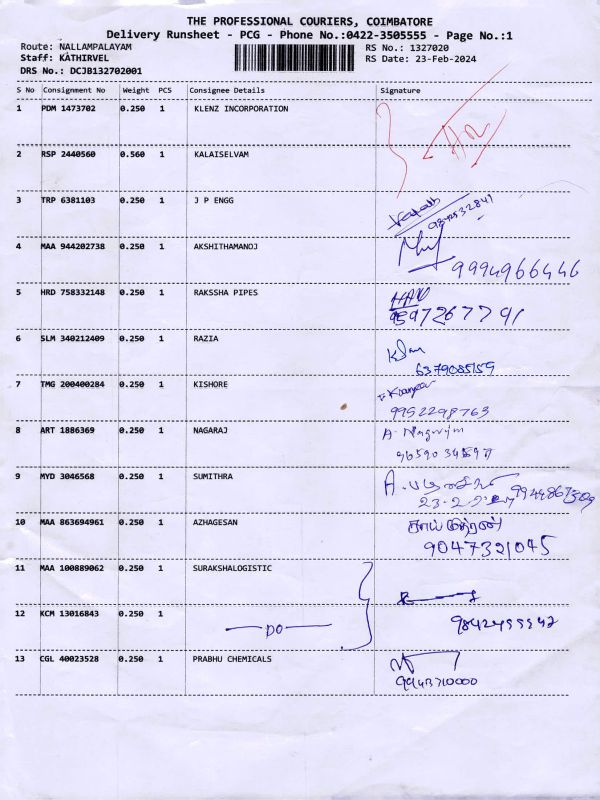 THE PROFESSIONAL COURIERS, COIMBATORE
Delivery Runsheet - PCG - Phone No.:0422-3505555 - Page No.:1
Route: NALLAMPALAYAM RS No.: 1327020
Staff: KATHIRVEL RS Date: 23-Feb-2024
DRS No.: DCJB132702001
S No Consignment No Weight PCS Consignee Details Signature
1 PDM 1473702 0.250 1 KLENZ INCORPORATION
2 RSP 2440560 0.560 1 KALAISELVAM
3 TRP 6381103 0.250 1 J P ENGG
9842532841
4 MAA 944202738 0.250 1 AKSHITHAMANOJ
9994966446
5 HRD 758332148 0.250 1 RAKSSHA PIPES
9597267791
6 SLM 340212409 0.250 1 RAZIA
6379085159
7 TMG 200400284 0.250 1 KISHORE
9952298763
8 ART 1886369 0.250 1 NAGARAJ
9 MYD 3046568 0.250 1 SUMITHRA
10 MAA 863694961 0.250 1 AZHAGESAN
9047321045
11 MAA 100889062 0.250 1 SURAKSHALOGISTIC
12 KCM 13016843 0.250 1
DO
13 CGL 40023528 0.250 1 PRABHU CHEMICALS
9943710000